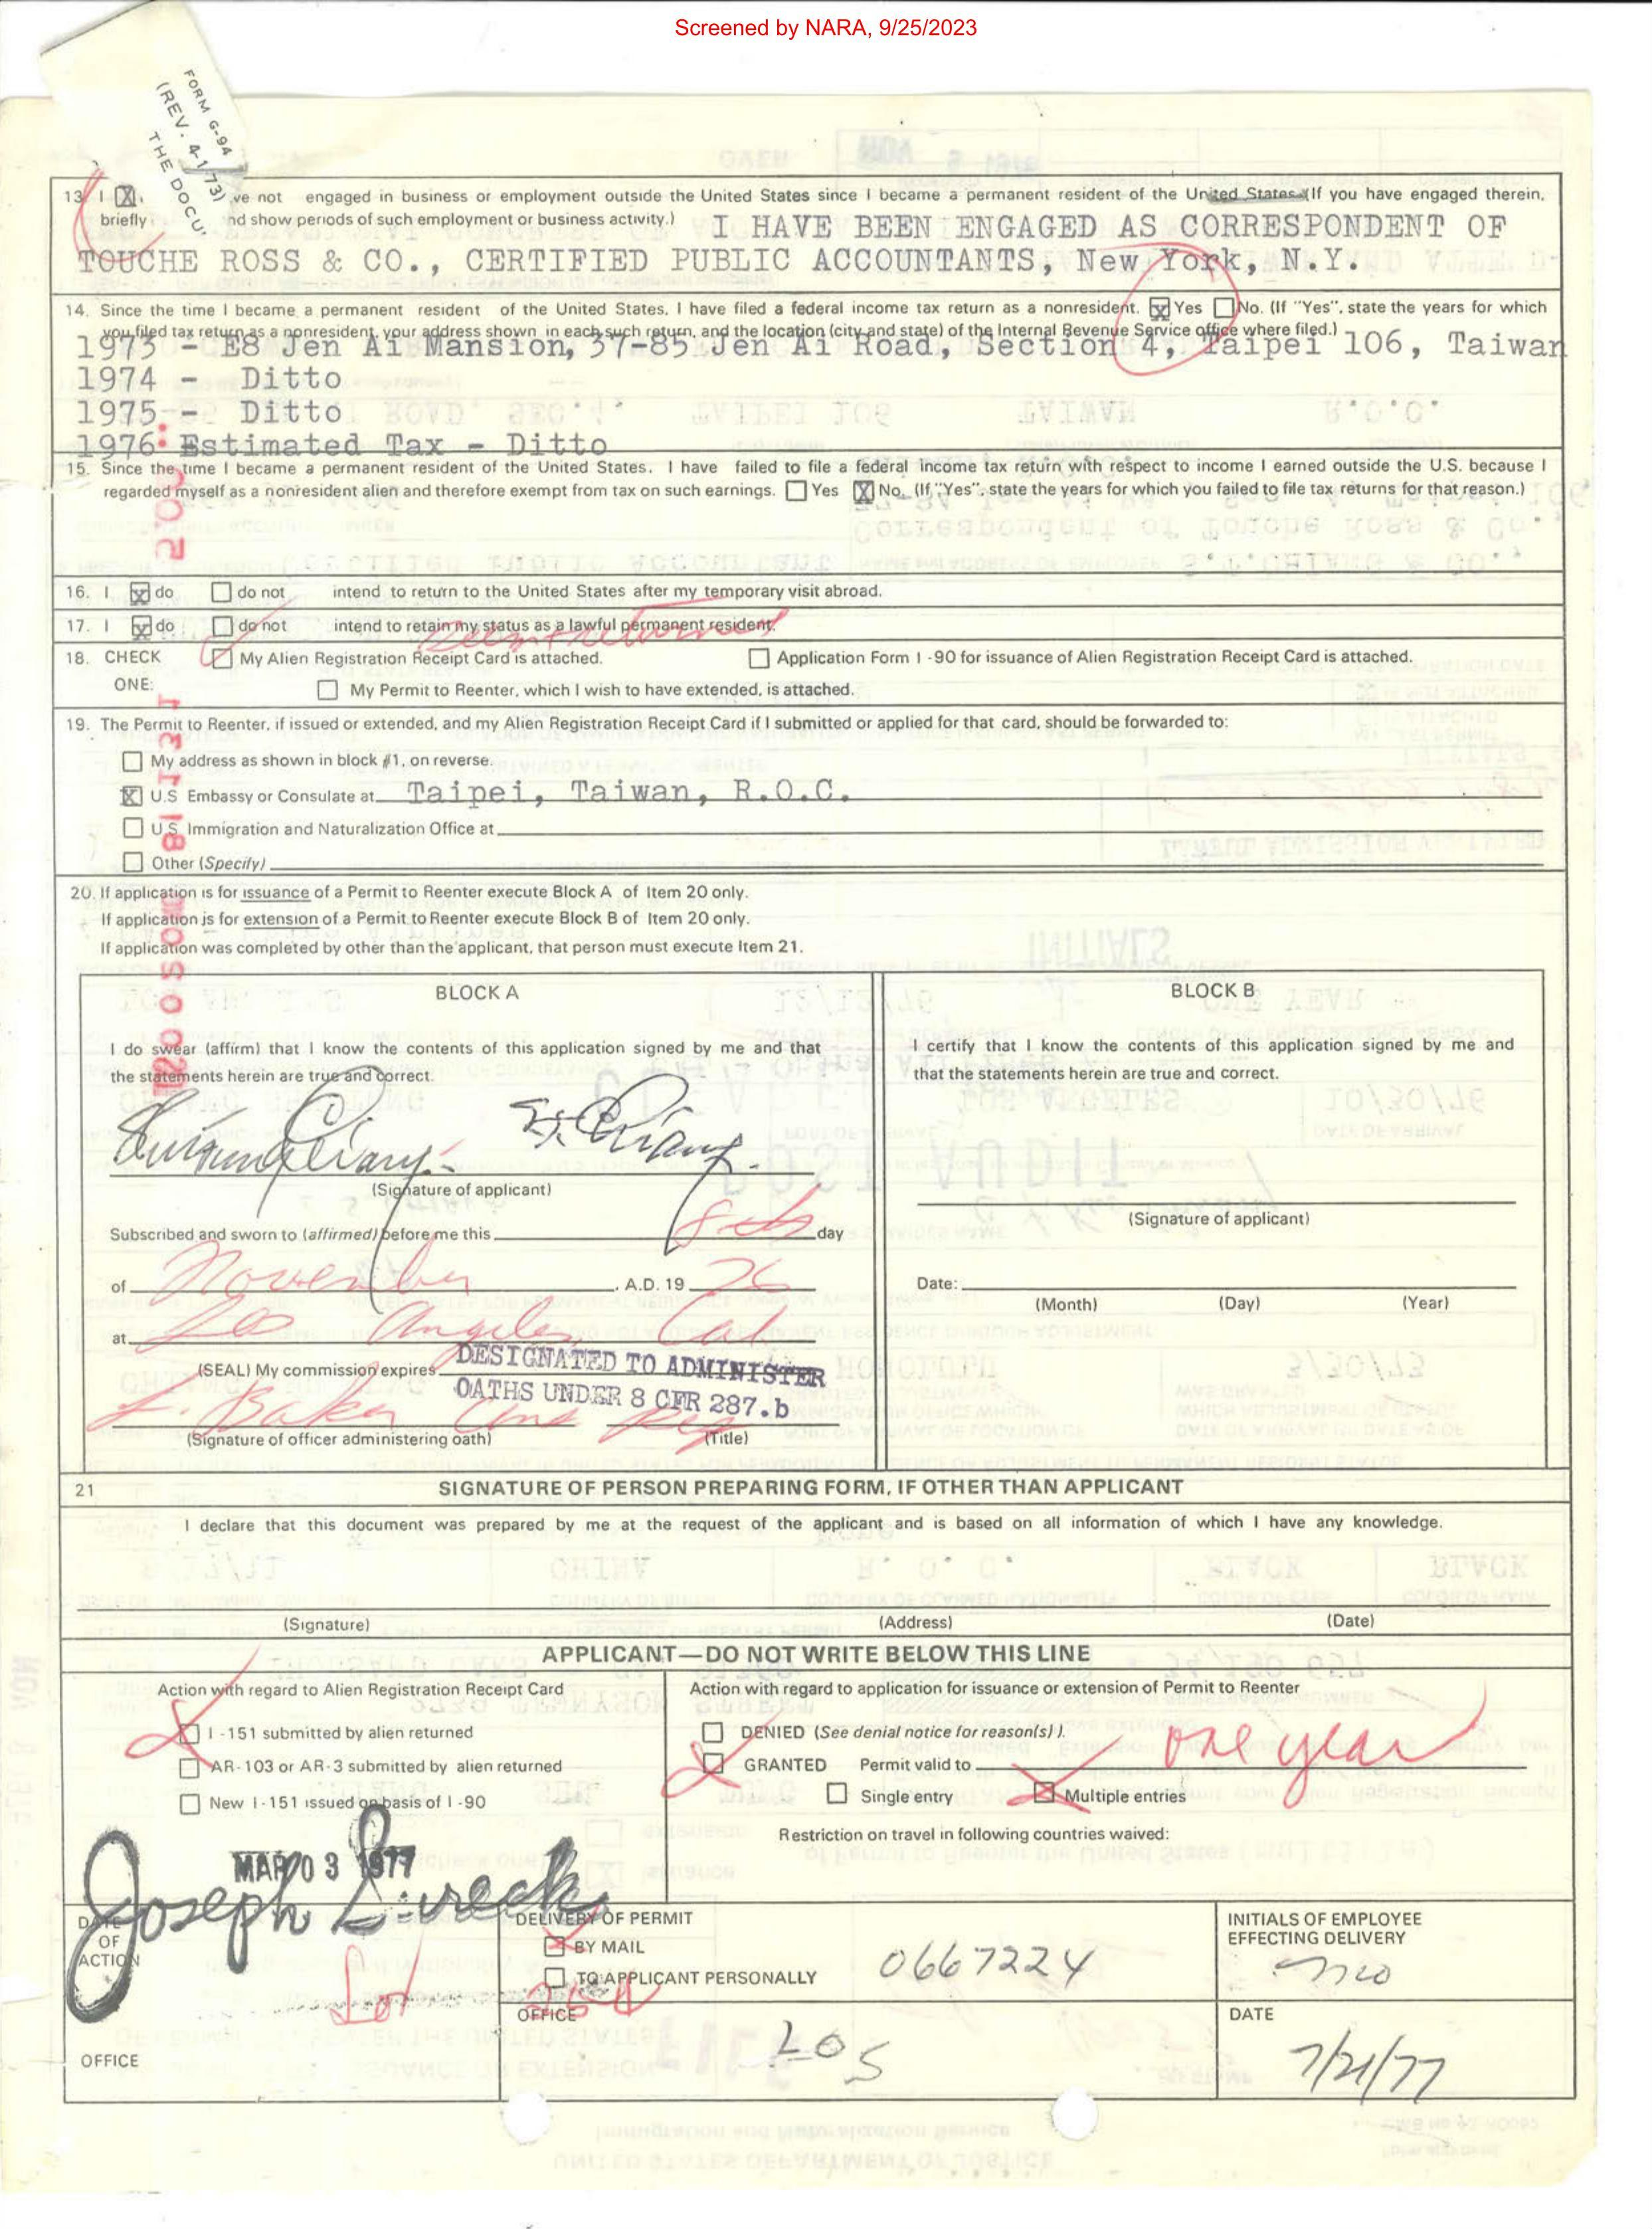 Screened by NARA, 9/25/2023
FORM G-94
(REV. 4-1-73)
THE DOCU
13. I ve not engaged in business or employment outside the United States since I became a permanent resident of the United States. (If you have engaged therein,
briefly nd show periods of such employment or business activity.) I HAVE BEEN ENGAGED AS CORRESPONDENT OF
TOUCHE ROSS & CO., CERTIFIED PUBLIC ACCOUNTANTS, New York, N.Y.
14. Since the time I became a permanent resident of the United States, I have filed a federal income tax return as a nonresident. X Yes No. (If "Yes", state the years for which
you filed tax return as a nonresident, your address shown in each such return, and the location (city and state) of the Internal Revenue Service office where filed.)
1973 - E8 Jen Ai Mansion, 37-85 Jen Ai Road, Section 4, Taipei 106, Taiwan
1974 - Ditto
1975 - Ditto
1976: Estimated Tax - Ditto
15. Since the time I became a permanent resident of the United States, I have failed to file a federal income tax return with respect to income I earned outside the U.S. because I
regarded myself as a nonresident alien and therefore exempt from tax on such earnings. Yes X No. (If "Yes", state the years for which you failed to file tax returns for that reason.)
16. I X do do not intend to return to the United States after my temporary visit abroad.
17. I X do do not intend to retain my status as a lawful permanent resident.
18. CHECK My Alien Registration Receipt Card is attached. Application Form I-90 for issuance of Alien Registration Receipt Card is attached.
ONE: My Permit to Reenter, which I wish to have extended, is attached.
19. The Permit to Reenter, if issued or extended, and my Alien Registration Receipt Card if I submitted or applied for that card, should be forwarded to:
My address as shown in block #1, on reverse.
X U.S Embassy or Consulate at Taipei, Taiwan, R.O.C.
U.S. Immigration and Naturalization Office at
Other (Specify)
20. If application is for issuance of a Permit to Reenter execute Block A of Item 20 only.
If application is for extension of a Permit to Reenter execute Block B of Item 20 only.
If application was completed by other than the applicant, that person must execute Item 21.
BLOCK A
I do swear (affirm) that I know the contents of this application signed by me and that
the statements herein are true and correct.
(Signature of applicant)
Subscribed and sworn to (affirmed) before me this 8th day
of November, A.D. 19 76
at Los Angeles Cal
(SEAL) My commission expires DESIGNATED TO ADMINISTER
OATHS UNDER 8 CFR 287.b
L. Baker
(Signature of officer administering oath) (Title)
BLOCK B
I certify that I know the contents of this application signed by me and
that the statements herein are true and correct.
(Signature of applicant)
Date:
(Month) (Day) (Year)
21 SIGNATURE OF PERSON PREPARING FORM, IF OTHER THAN APPLICANT
I declare that this document was prepared by me at the request of the applicant and is based on all information of which I have any knowledge.
(Signature) (Address) (Date)
APPLICANT—DO NOT WRITE BELOW THIS LINE
Action with regard to Alien Registration Receipt Card
I-151 submitted by alien returned
AR-103 or AR-3 submitted by alien returned
New I-151 issued on basis of I-90
Action with regard to application for issuance or extension of Permit to Reenter
DENIED (See denial notice for reason(s) ).
GRANTED Permit valid to one year
Single entry X Multiple entries
Restriction on travel in following countries waived:
MAR 03 1977
Joseph Sureck
DATE
OF
ACTION
Los
OFFICE
DELIVERY OF PERMIT
X BY MAIL
TO APPLICANT PERSONALLY
0667224
OFFICE
LOS
INITIALS OF EMPLOYEE
EFFECTING DELIVERY
DATE
7/21/77